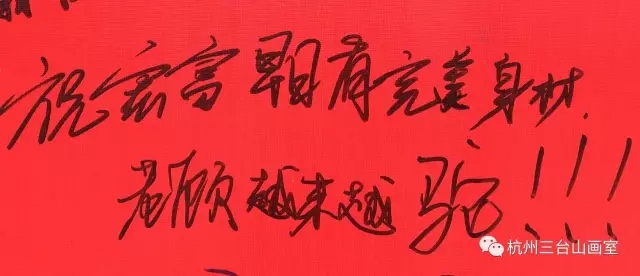 祝宏富早日有完美身材.
老顾越来越驼!!!
杭州三台山画室